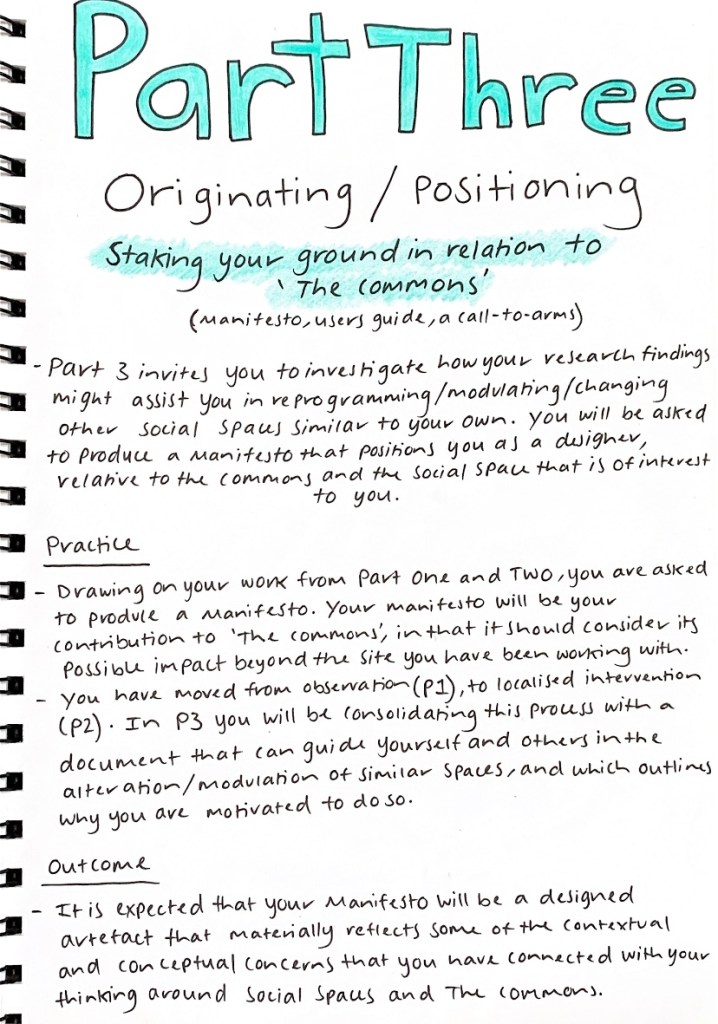 Part Three
Originating / Positioning
Staking your ground in relation to
'The Commons'
(Manifesto, users guide, a call-to-arms)
- Part 3 invites you to investigate how your research findings
might assist you in reprogramming/modulating/changing
other social spaces similar to your own. You will be asked
to produce a Manifesto that positions you as a designer,
relative to the commons and the social space that is of interest
to you.
Practice
- Drawing on your work from Part One and Two, you are asked
to produce a Manifesto. Your manifesto will be your
contribution to 'The commons', in that it should consider its
possible impact beyond the site you have been working with.
- You have moved from observation (P1), to localised intervention
(P2). In P3 you will be consolidating this process with a
document that can guide yourself and others in the
alteration/modulation of similar spaces, and which outlines
why you are motivated to do so.
Outcome
- It is expected that your Manifesto will be a designed
artefact that materially reflects some of the contextual
and conceptual concerns that you have connected with your
thinking around Social Spaces and The Commons.